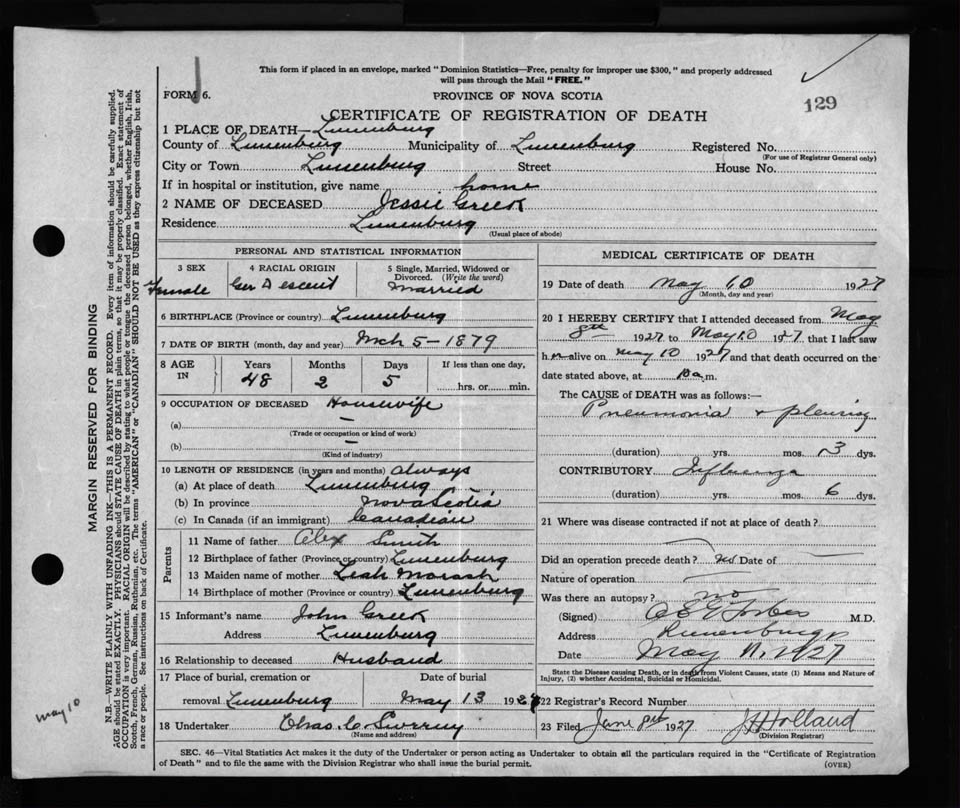 This form if placed in an envelope, marked "Dominion Statistics—Free, penalty for improper use $300," and properly addressed
will pass through the Mail "FREE."
FORM 6.
PROVINCE OF NOVA SCOTIA
129
CERTIFICATE OF REGISTRATION OF DEATH
1 PLACE OF DEATH—Lunenburg
County of Lunenburg Municipality of Lunenburg Registered No.
(For use of Registrar General only)
City or Town Lunenburg Street House No.
If in hospital or institution, give name home
2 NAME OF DECEASED Jessie Greek
Residence Lunenburg
(Usual place of abode)
PERSONAL AND STATISTICAL INFORMATION
3 SEX 4 RACIAL ORIGIN 5 Single, Married, Widowed or
Divorced. (Write the word)
Female Ger Descent Married
6 BIRTHPLACE (Province or country) Lunenburg
7 DATE OF BIRTH (month, day and year) Mch 5-1879
8 AGE IN Years Months Days If less than one day,
48 2 5 hrs. or min.
9 OCCUPATION OF DECEASED Housewife
(a) —
(Trade or occupation or kind of work)
(b) —
(Kind of industry)
10 LENGTH OF RESIDENCE (in years and months) always
(a) At place of death Lunenburg
(b) In province Nova Scotia
(c) In Canada (if an immigrant) Canadian
Parents
11 Name of father Alex Smith
12 Birthplace of father (Province or country) Lunenburg
13 Maiden name of mother Leah Morash
14 Birthplace of mother (Province or country) Lunenburg
15 Informant's name John Greek
Address Lunenburg
16 Relationship to deceased Husband
17 Place of burial, cremation or Date of burial
removal Lunenburg May 13 1927
18 Undertaker Chas. C.
(Name and address)
MEDICAL CERTIFICATE OF DEATH
19 Date of death May 10 1927
(Month, day and year)
20 I HEREBY CERTIFY that I attended deceased from May
8th 1927 to May 10 1927 that I last saw
h er alive on May 10 1927 and that death occurred on the
date stated above, at 10 a m.
The CAUSE of DEATH was as follows:
Pneumonia + pleurisy
(duration) yrs. mos. 3 dys.
CONTRIBUTORY Influenza
(duration) yrs. mos. 6 dys.
21 Where was disease contracted if not at place of death?
Did an operation precede death? no Date of
Nature of operation
Was there an autopsy? no
(Signed) Forbes M.D.
Address Lunenburg
Date May 11, 1927
State the Disease causing Death, or in death from Violent Causes, state (1) Means and Nature of
Injury, (2) whether Accidental, Suicidal or Homicidal.
22 Registrar's Record Number
23 Filed June 1927 Holland
(Division Registrar)
SEC. 46—Vital Statistics Act makes it the duty of the Undertaker or person acting as Undertaker to obtain all the particulars required in the "Certificate of Registration
of Death" and to file the same with the Division Registrar who shall issue the burial permit. (OVER)
MARGIN RESERVED FOR BINDING
N.B.—WRITE PLAINLY WITH UNFADING INK—THIS IS A PERMANENT RECORD. Every item of information should be carefully supplied.
AGE should be stated EXACTLY. PHYSICIANS should STATE CAUSE OF DEATH in plain terms, so that it may be properly classified. Exact statement of
OCCUPATION is very important. RACIAL ORIGIN will be described by stating to what people or tongue the deceased person belonged, whether English, Irish,
Scotch, French, German, Russian, Ruthenian, etc. The terms "AMERICAN" or "CANADIAN" SHOULD NOT BE USED as they express citizenship but not
a race or people. See instructions on back of Certificate.
May 10